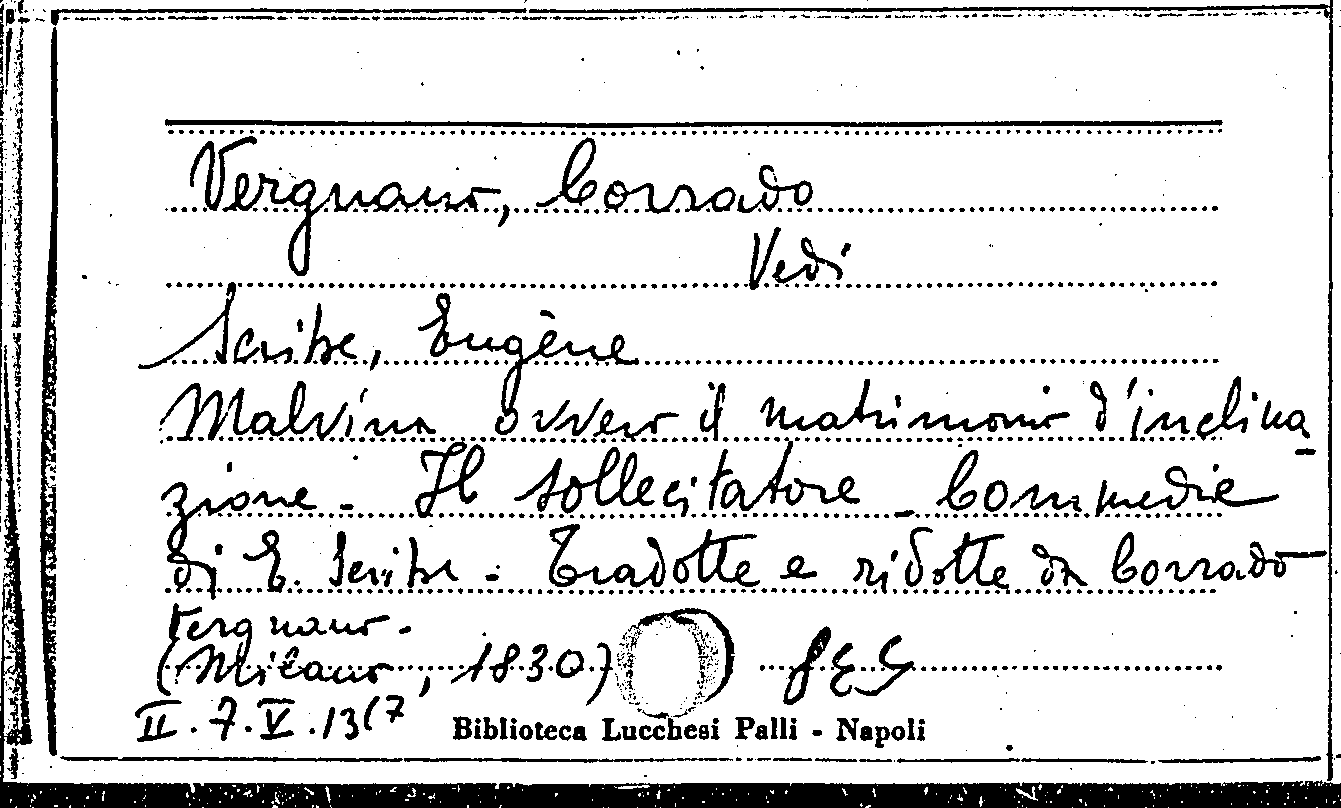 Vergnano, Corrado
Vedi
Scribe, Eugène
Malvina ovvero il matrimonio d'inclina-
zione - Il sollecitatore - Commedie
di E. Scribe - Tradotte e ridotte da Corrado
Vergnano.
(Milano, 1830)
II.7.V.13(7
Biblioteca Lucchesi Palli - Napoli